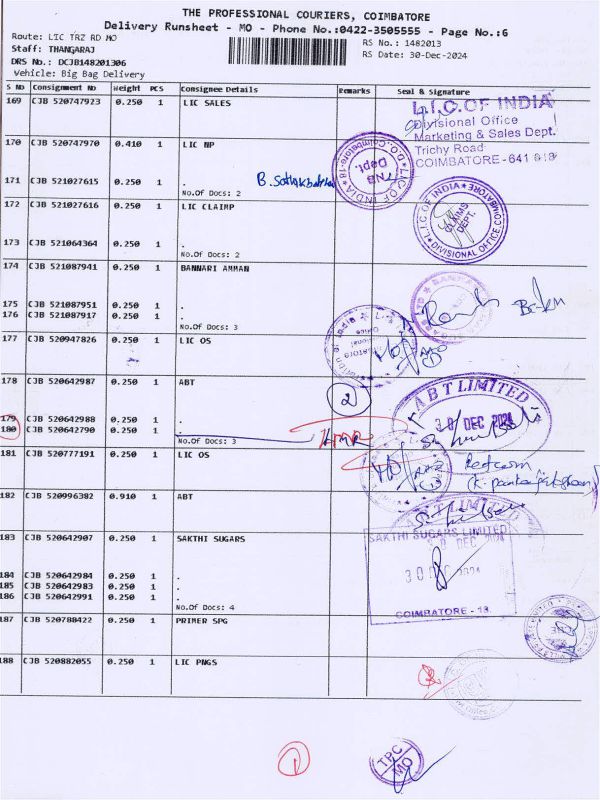 THE PROFESSIONAL COURIERS, COIMBATORE
Delivery Runsheet - MO - Phone No.:0422-3505555 - Page No.:6
Route: LIC TRZ RD MO
RS No.: 1482013
Staff: THANGARAJ
RS Date: 30-Dec-2024
DRS No.: DCJB148201306
Vehicle: Big Bag Delivery
S No Consignment No Weight PCS Consignee Details Remarks Seal & Signature
169 CJB 520747923 0.250 1 LIC SALES
L.I.C.OF INDIA
Divisional Office
Marketing & Sales Dept.
Trichy Road
COIMBATORE - 641 018
170 CJB 520747970 0.410 1 LIC NP
NB Dept.
171 CJB 521027615 0.250 1 .
No.Of Docs: 2
172 CJB 521027616 0.250 1 LIC CLAIMP
L.I.C. OF INDIA
CLAIMS DEPT.
DIVISIONAL OFFICE, COIMBATORE
173 CJB 521064364 0.250 1 .
No.Of Docs: 2
174 CJB 521087941 0.250 1 BANNARI AMMAN
175 CJB 521087951 0.250 1 .
176 CJB 521087917 0.250 1 .
No.Of Docs: 3
177 CJB 520947826 0.250 1 LIC OS
178 CJB 520642987 0.250 1 ABT
2
ABT LIMITED
30 DEC 2024
179 CJB 520642988 0.250 1 .
180 CJB 520642790 0.250 1 .
No.Of Docs: 3
181 CJB 520777191 0.250 1 LIC OS
182 CJB 520996382 0.910 1 ABT
ABT LIMITED
183 CJB 520642907 0.250 1 SAKTHI SUGARS
SAKTHI SUGARS LIMITED
30 DEC 2024
COIMBATORE - 18.
184 CJB 520642984 0.250 1 .
185 CJB 520642983 0.250 1 .
186 CJB 520642991 0.250 1 .
No.Of Docs: 4
187 CJB 520788422 0.250 1 PRIMER SPG
188 CJB 520882055 0.250 1 LIC PNGS
1
TPC
MO